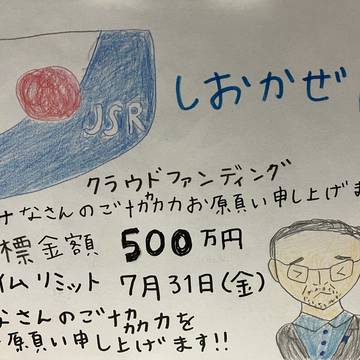 JSR
しおかぜ
クラウドファンディング
なさんのご協力お願い申し上げま
標金額 500万円
イムリミット 7月31日(金)
なさんのご協力を
お願い申し上げます!!